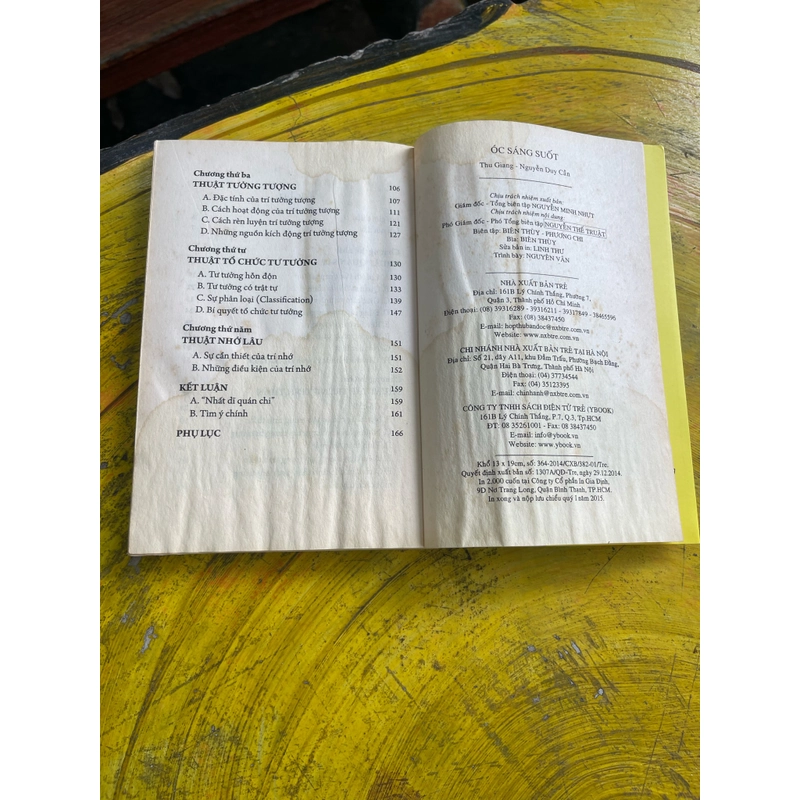 Chương thứ ba
THUẬT TƯỞNG TƯỢNG 106
A. Đặc tính của trí tưởng tượng 107
B. Cách hoạt động của trí tưởng tượng 111
C. Cách rèn luyện trí tưởng tượng 121
D. Những nguồn kích động trí tưởng tượng 127
Chương thứ tư
THUẬT TỔ CHỨC TƯ TƯỞNG 130
A. Tư tưởng hỗn độn 130
B. Tư tưởng có trật tự 133
C. Sự phân loại (Classification) 139
D. Bí quyết tổ chức tư tưởng 147
Chương thứ năm
THUẬT NHỚ LÂU 151
A. Sự cần thiết của trí nhớ 151
B. Những điều kiện của trí nhớ 152
KẾT LUẬN 159
A. "Nhất dĩ quán chi" 159
B. Tìm ý chính 161
PHỤ LỤC 166
ÓC SÁNG SUỐT
Thu Giang - Nguyễn Duy Cần
Chịu trách nhiệm xuất bản:
Giám đốc - Tổng biên tập NGUYỄN MINH NHỰT
Chịu trách nhiệm nội dung:
Phó Giám đốc - Phó Tổng biên tập NGUYỄN THẾ TRUẬT
Biên tập: BIÊN THÙY - PHƯƠNG CHI
Bìa: BIÊN THÙY
Sửa bản in: LINH THƯ
Trình bày: NGUYÊN VÂN
NHÀ XUẤT BẢN TRẺ
Địa chỉ: 161B Lý Chính Thắng, Phường 7,
Quận 3, Thành phố Hồ Chí Minh
Điện thoại: (08) 39316289 - 39316211 - 39317849 - 38465596
Fax: (08) 38437450
E-mail: hopthubandoc@nxbtre.com.vn
Website: www.nxbtre.com.vn
CHI NHÁNH NHÀ XUẤT BẢN TRẺ TẠI HÀ NỘI
Địa chỉ: Số 21, dãy A11, khu Đầm Trấu, Phường Bạch Đằng,
Quận Hai Bà Trưng, Thành phố Hà Nội
Điện thoại: (04) 37734544
Fax: (04) 35123395
E-mail: chinhanh@nxbtre.com.vn
CÔNG TY TNHH SÁCH ĐIỆN TỬ TRẺ (YBOOK)
161B Lý Chính Thắng, P.7, Q.3, Tp.HCM
ĐT: 08 35261001 - Fax: 08 38437450
E-mail: info@ybook.vn
Website: www.ybook.vn
Khổ 13 x 19cm, số: 364-2014/CXB/382-01/Tre.
Quyết định xuất bản số: 1307A/QĐ-Tre, ngày 29.12.2014.
In 2.000 cuốn tại Công ty Cổ phần In Gia Định,
9D Nơ Trang Long, Quận Bình Thạnh, TP.HCM.
In xong và nộp lưu chiểu quý I năm 2015.